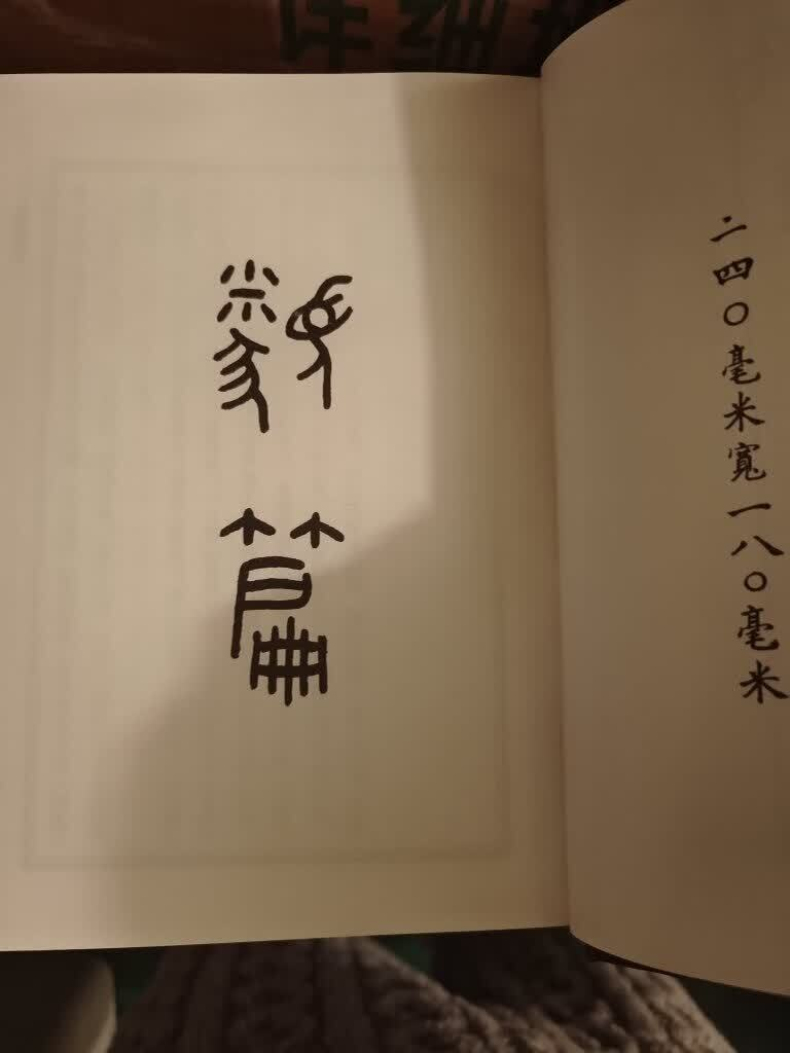 二四〇毫米寬一八〇毫米
類篇